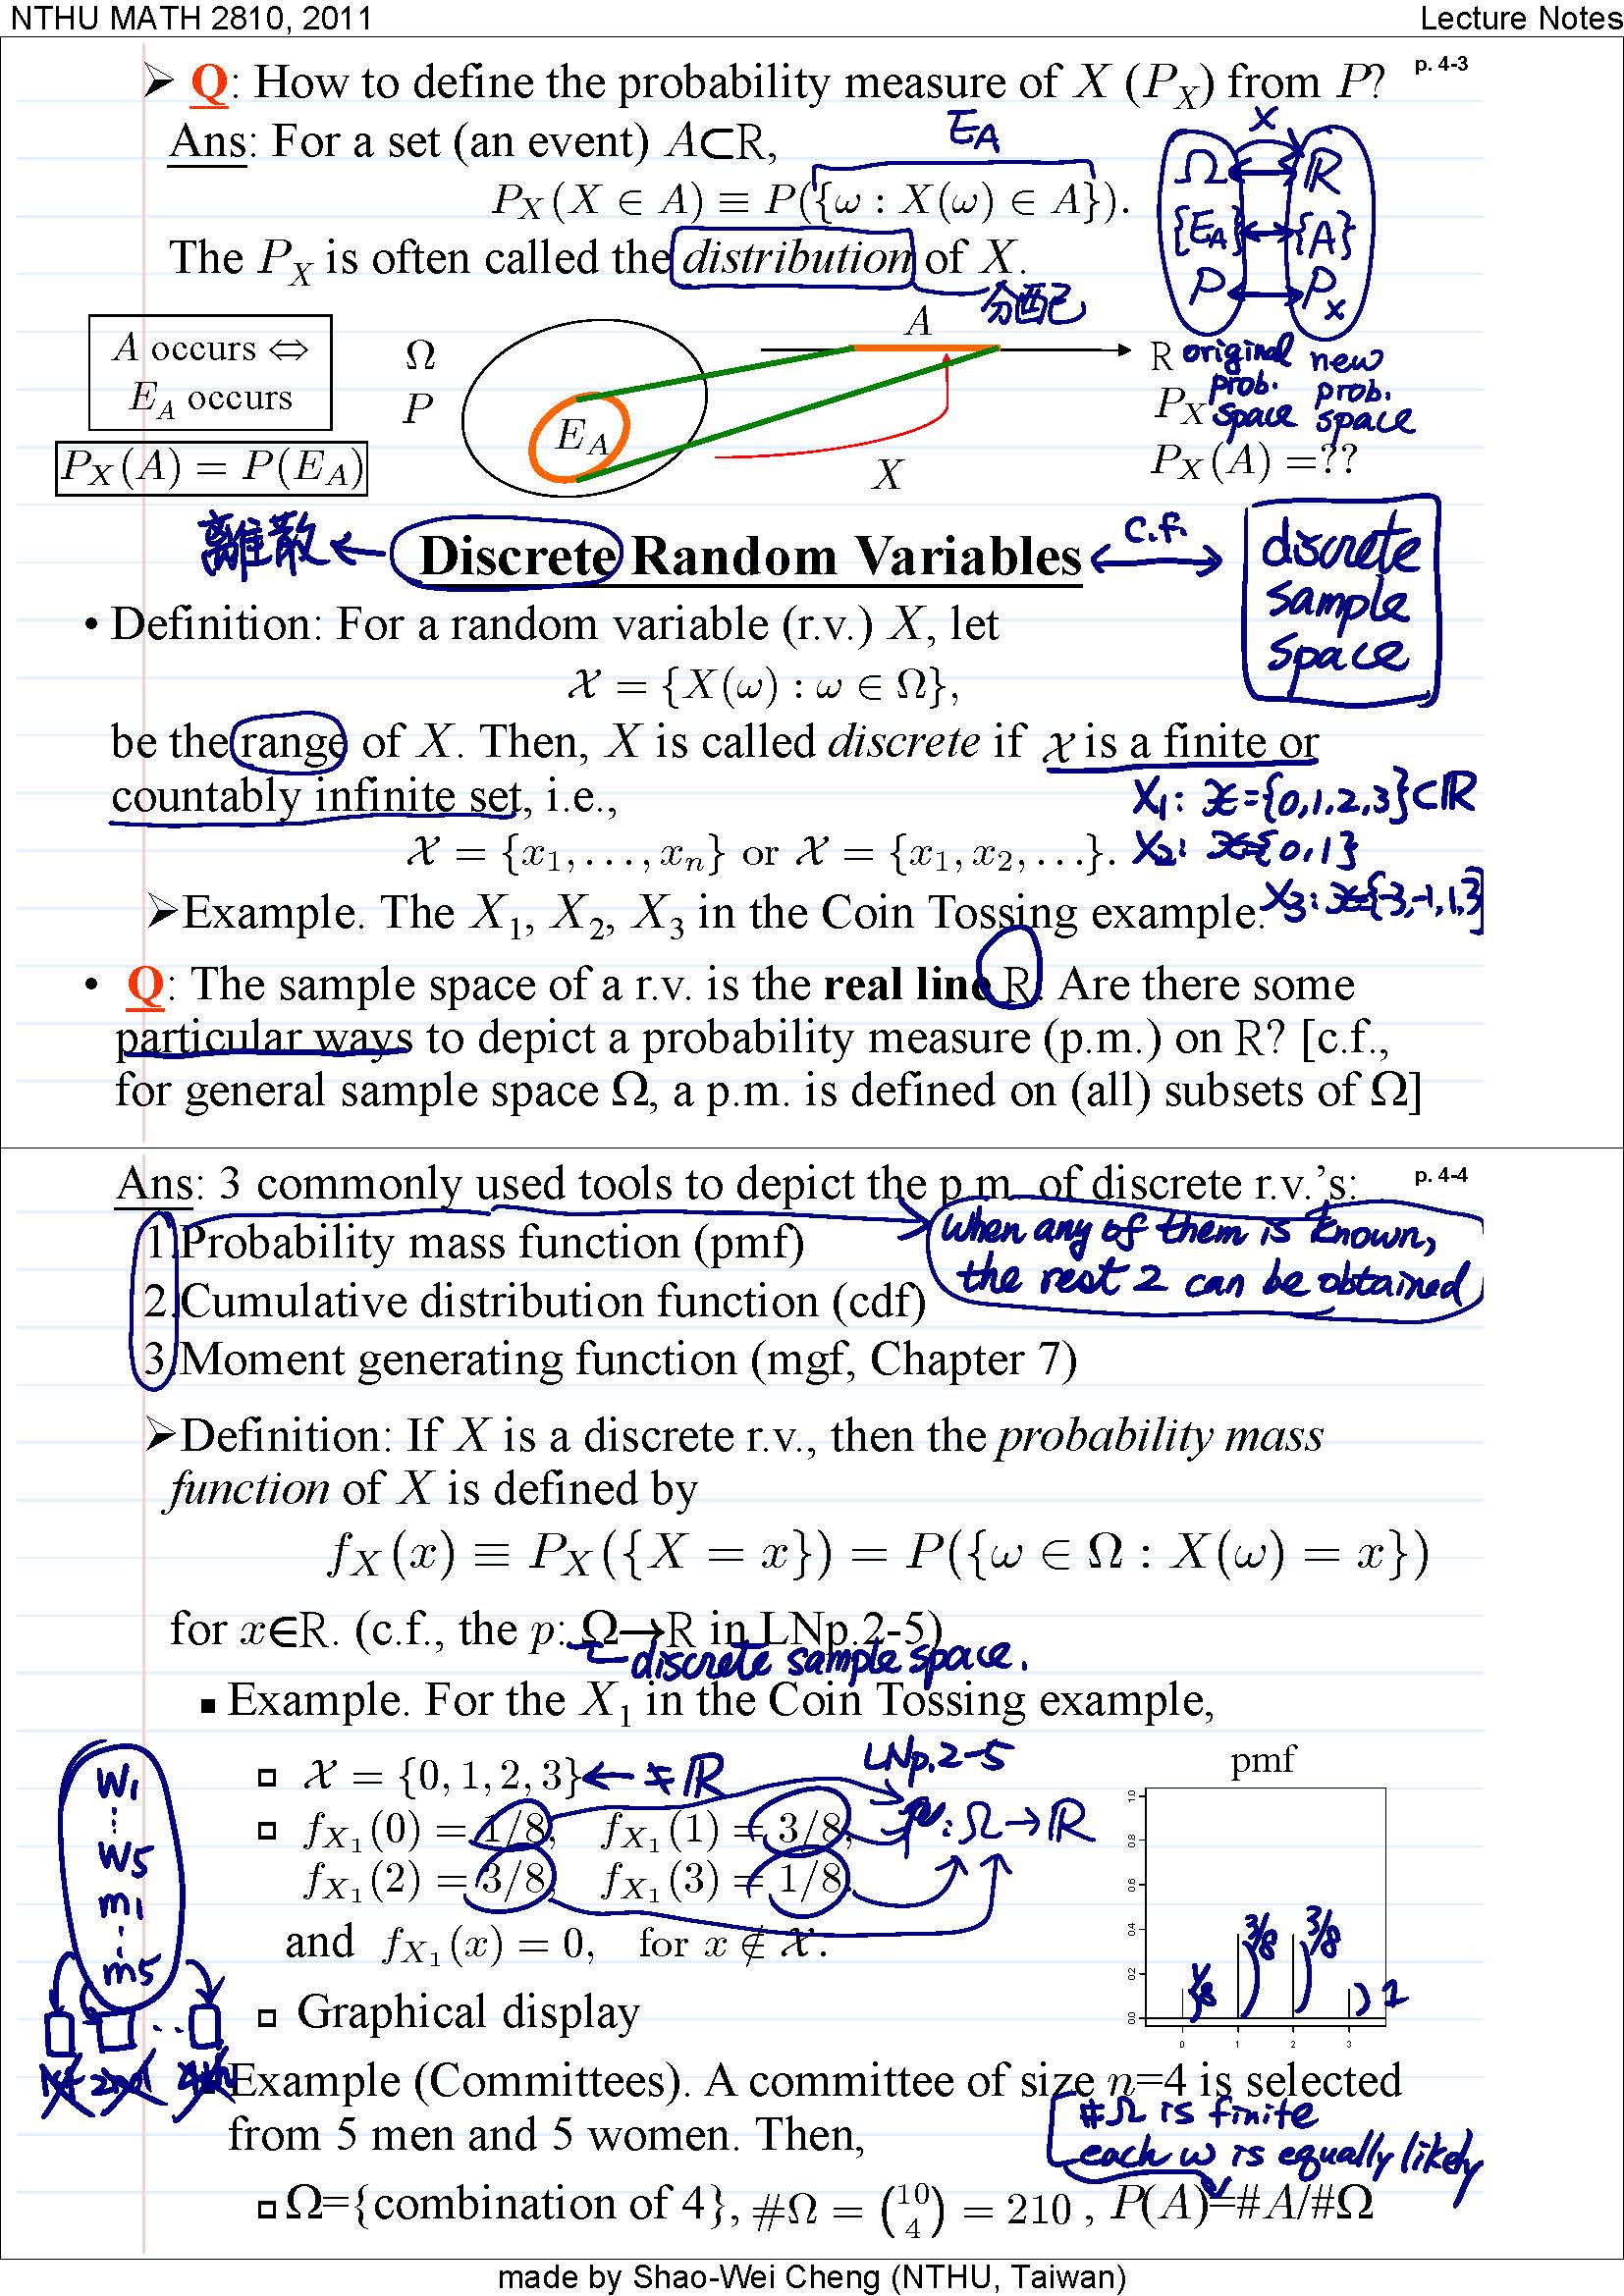 NTHU MATH 2810, 2011 Lecture Notes
p. 4-3
➢ Q: How to define the probability measure of X (P_X) from P?
Ans: For a set (an event) A⊂ℝ,
E_A
P_X(X ∈ A) ≡ P({ω : X(ω) ∈ A}).
The P_X is often called the distribution of X.
分配
X
Ω ℝ
{E_A} {A}
P P_X
original prob. space
new prob. space
A occurs ⇔
E_A occurs
P_X(A) = P(E_A)
Ω
P
E_A
A
X
ℝ
P_X
P_X(A) =??
離散 ← Discrete Random Variables ↔ c.f.
discrete
sample
space
• Definition: For a random variable (r.v.) X, let
𝒳 = {X(ω) : ω ∈ Ω},
be the range of X. Then, X is called discrete if 𝒳 is a finite or
countably infinite set, i.e.,
X₁: 𝒳={0,1,2,3}⊂ℝ
𝒳 = {x₁, . . . , xₙ} or 𝒳 = {x₁, x₂, . . .}.
X₂: 𝒳={0,1}
➢Example. The X₁, X₂, X₃ in the Coin Tossing example.
X₃: 𝒳={-3,-1,1,3}
• Q: The sample space of a r.v. is the real line ℝ. Are there some
particular ways to depict a probability measure (p.m.) on ℝ? [c.f.,
for general sample space Ω, a p.m. is defined on (all) subsets of Ω]
p. 4-4
Ans: 3 commonly used tools to depict the p.m. of discrete r.v.'s:
1.Probability mass function (pmf)
2.Cumulative distribution function (cdf)
3.Moment generating function (mgf, Chapter 7)
when any of them is known,
the rest 2 can be obtained
➢Definition: If X is a discrete r.v., then the probability mass
function of X is defined by
f_X(x) ≡ P_X({X = x}) = P({ω ∈ Ω : X(ω) = x})
for x∈ℝ. (c.f., the p: Ω→ℝ in LNp.2-5)
discrete sample space.
▪ Example. For the X₁ in the Coin Tossing example,
▫ 𝒳 = {0, 1, 2, 3} ← ≠ ℝ
LNp.2-5
▫ f_X₁(0) = 1/8, f_X₁(1) = 3/8,
p: Ω → ℝ
f_X₁(2) = 3/8, f_X₁(3) = 1/8.
and f_X₁(x) = 0, for x ∉ 𝒳.
▫ Graphical display
pmf
1.0
0.8
0.6
0.4
0.2
0.0
0 1 2 3
1/8 3/8 3/8
W1
W5
m1
m5
1st 2nd 4th
▪ Example (Committees). A committee of size n=4 is selected
from 5 men and 5 women. Then,
#Ω is finite
each ω is equally likely
▫ Ω={combination of 4}, #Ω = (10 4) = 210 , P(A)=#A/#Ω
made by Shao-Wei Cheng (NTHU, Taiwan)